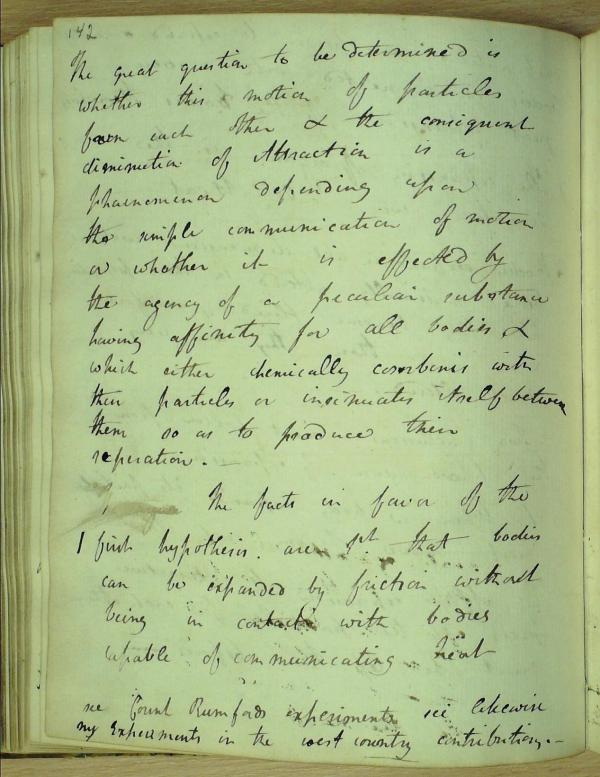 142
The great question to be determined is
whether this motion of particles
from each other & the consequent
diminution of Attraction is a
phaenomenon depending upon
the simple communication of motion
or whether it is effected by
the agency of a peculiar substance
having affinity for all bodies &
which either chemically combines with
their particles or insinuates itself between
them so as to produce their
seperation. —
The facts in favor of the
1 first hypothesis. are 1st that bodies
can be expanded by friction without
being in contact with bodies
capable of communicating heat
see Count Rumfords experiments see likewise
my Experiments in the west country contributions. —